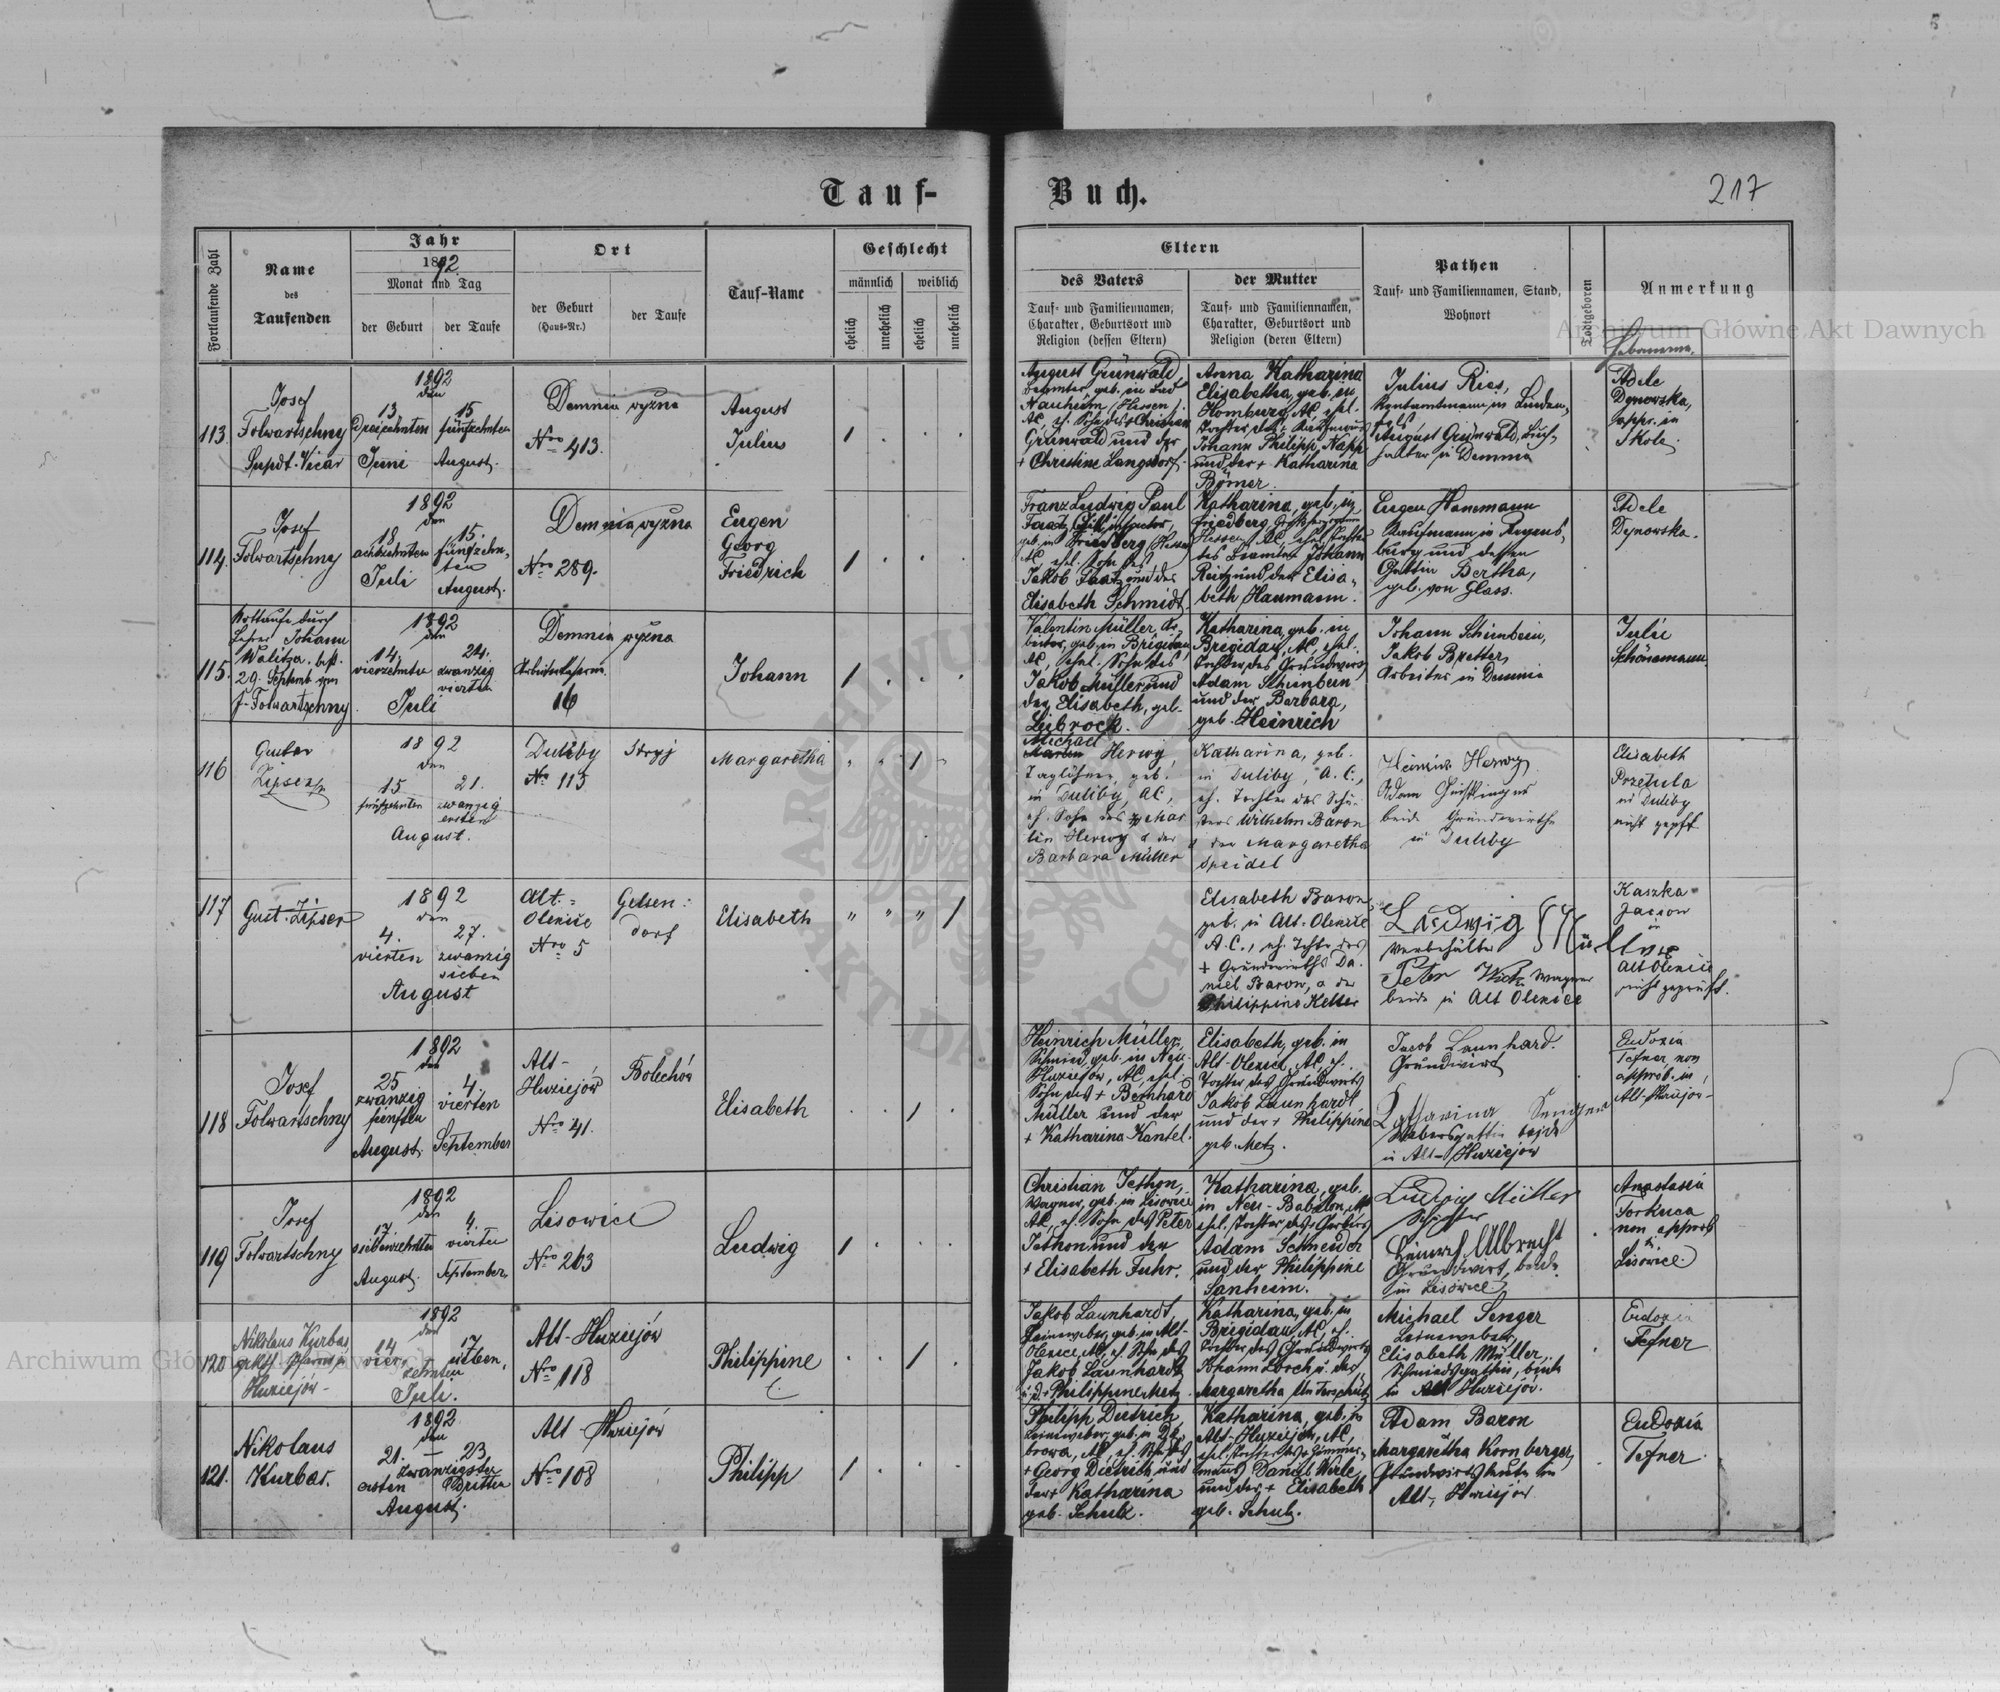 Tauf-Buch.
217
Fortlaufende Zahl
Name
des
Taufenden
Jahr
1892
Monat und Tag
der Geburt
der Taufe
Ort
der Geburt
(Haus-Nr.)
der Taufe
Tauf-Name
Geschlecht
männlich
weiblich
ehelich
unehelich
ehelich
unehelich
Eltern
des Vaters
Tauf- und Familiennamen,
Charakter, Geburtsort und
Religion (dessen Eltern)
der Mutter
Tauf- und Familiennamen,
Charakter, Geburtsort und
Religion (deren Eltern)
Pathen
Tauf- und Familiennamen, Stand,
Wohnort
Todtgeboren
Anmerkung
Hebamme.
113.
Josef
Folwartschny
Supdt. Vicar
1892
den
13
dreizehnten
Juni
15
fünfzehnten
August.
Demnia wyżna
Nro 413.
August
Julius
1
August Grünwald,
Beamter, geb. in Bad
Nauheim (Hessen),
AC, eh. Sohn des Christian
Grünwald und der
+ Christine Langsdorf.
Anna Katharina
Elisabetha, geb. in
Homburg, AC, ehel.
Johann Philipp Napp
und der + Katharina
Börner.
Julius Ries,
August Grünwald, Buch-
halter in Demnia
Adele
Dynowska,
appr. in
Skole.
114.
Josef
Folwartschny
1892
den
18
achtzehnten
Juli
15.
fünfzehn-
ten
August.
Demnia wyżna
Nro 289.
Eugen
Georg
Friedrich
1
Franz Ludwig Paul
geb. in Friedberg (Hessen
AC, ehel. Sohn des
Jakob Faatz und der
Elisabeth Schmidt.
Katharina, geb. in
Friedberg,
Hessen, AC, ehel. Tochter
des Beamten Johann
Reitz und der Elisa-
beth Haumann.
Eugen Hanemann
Kaufmann in Regens-
burg und dessen
Gattin Bertha,
geb. von Glass.
Adele
Dynowska.
115.
Nottaufe durch
Lehrer Johann
Walitza, best.
29. Septemb. von
J. Folwartschny
1892
den
14.
vierzehnten
Juli
24.
zwanzig
vierten
Demnia wyżna
16
Johann
1
Valentin Müller, Ar-
beiter, geb. in Brigidau,
AC, ehel. Sohn des
Jakob Müller und
der Elisabeth, geb.
Leibrock.
Katharina, geb. in
Brigidau, AC, ehel.
Tochter des Grundwirts
Adam Schimbein
und der Barbara,
geb. Heinrich
Johann Schimbein,
Jakob Bretter,
Arbeiter in Demnia
Julie
Schönemann
116
Gustav
Zipser
1892
den
15
fünfzehnten
21.
zwanzig
ersten
August.
Duliby
No 115
Stryj
Margaretha
" " 1 "
Michael
Martin Herwy,
Taglöhner, geb.
in Duliby, AC,
eh. Sohn des Mar
tin Herwy u der
Barbara Müller
Katharina, geb.
in Duliby, A.C.,
eh. Tochter des Schu-
sters Wilhelm Baron
u der Margaretha
Speidel
Heinrich Herwy
beide Grundwirthe
in Duliby
Elisabeth
Przetula
in Duliby
nicht geprft
117
Gust. Zipser
1892
den
4.
vierten
27.
zwanzig
sieben
August
Alt-
Olexice
Nro 5
Gelsen-
dorf
Elisabeth
" " " 1
Elisabeth Baron,
geb. in Alt-Olexice
A.C., eh. Tochter des
+ Grundwirths Da-
niel Baron, u der
Philippine Keller
Ludwig Müller
Peter Wagner
beide in Alt Olexice
Kaszka
in
Alt Olexice
nicht geprüft.
118
Josef
Folwartschny
1892
den
25
zwanzig
fünften
August.
4.
vierten
September
Alt-
Huziejów
Nro 41.
Bolechów
Elisabeth
1
Heinrich Müller,
Schmied, geb. in Neu-
Huziejów, AC, ehel.
Sohn des + Bernhard
Müller und der
+ Katharina Kantel.
Elisabeth, geb. in
Alt-Olexice, AC, eh.
Tochter des Grundwirts
Jakob Launhardt
und der + Philippine
geb. Metz.
Jacob Launhard.
Grundwirt
Katharina Senger
Webersgattin beide
in Alt-Huziejów
Eudoxia
Tefner non
approb. in
Alt-Huziejów-
119
Josef
Folwartschny
1892
den
17
siebenzehnten
August.
4.
vierten
September
Lisowice
Nro 263
Ludwig
1
Christian Jethon,
Wagner, geb. in Lisowice
AC, eh. Sohn des Peter
Jethon und der
+ Elisabeth Fuhr.
Katharina, geb.
in Neu-Babilon, AC
ehel. Tochter des Gerbers
Adam Schneider
und der Philippine
Sanheim.
Ludwig Müller
Heinrich Albrecht
Grundwirt, beide
in Lisowice
Anastasia
Torkuca
non approb
in
Lisowice.
120
Nikolaus Kurbas
grkth. Pfarrer in
Huziejów-
1892
den
14
vier-
zehnten
Juli.
17
sieben,
Alt-Huziejów
Nro 118
Philippine
1
Jakob Launhardt,
Leineweber, geb. in Alt-
Olexice, AC, eh. Sohn des
Jakob Launhardt
u. d. + Philippine Metz.
Katharina, geb. in
Brigidau, AC, eh.
Tochter des Grundwirts
Johann Lorch u. der
Margaretha Unterschütz
Michael Senger
Leineweber,
Elisabeth Müller,
Schmiedsgattin, beide
in Alt Huziejów.
Eudoxia
Tefner
121.
Nikolaus
Kurbas.
1892
den
21. — 23
zwanzigsten
ersten dritten
August.
Alt-Huziejów
Nro 108
Philipp
1
Philipp Dietrich,
Leineweber, geb. in Dą-
browa, AC, eh. Sohn des
+ Georg Dietrich und
der + Katharina
geb. Schulz.
Katharina, geb. in
Alt-Huziejów, AC,
ehel. Tochter des + Zimmer-
manns Daniel Werle,
und der + Elisabeth
geb. Schulz.
Adam Baron
Margaretha Kornberger,
Grundwirtsleute in
Alt-Huziejów
Eudoxia
Tefner.
Archiwum Główne Akt Dawnych
Archiwum Główne Akt Dawnych
ARCHIWUM GŁÓWNE AKT DAWNYCH